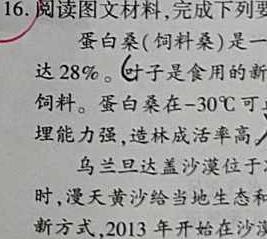 16. 阅读图文材料,完成下列
蛋白桑(饲料桑)是一
达28%。叶子是食用的新
饲料。蛋白桑在-30℃可
埋能力强,造林成活率高
乌兰旦达盖沙漠位于
时,漫天黄沙给当地生态和
新方式,2013年开始在沙漠